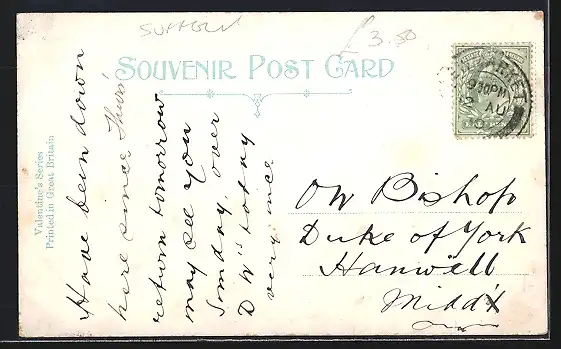 SUFFOLK
£3.50
SOUVENIR POST CARD
Valentine's Series
Printed in Great Britain
Have been down
here since Thurs
return tomorrow
may see you
Sunday, over
D W's today
very nice
MARKET
930PM
AU
OW Bishop
Duke of York
Hanwell
Middx